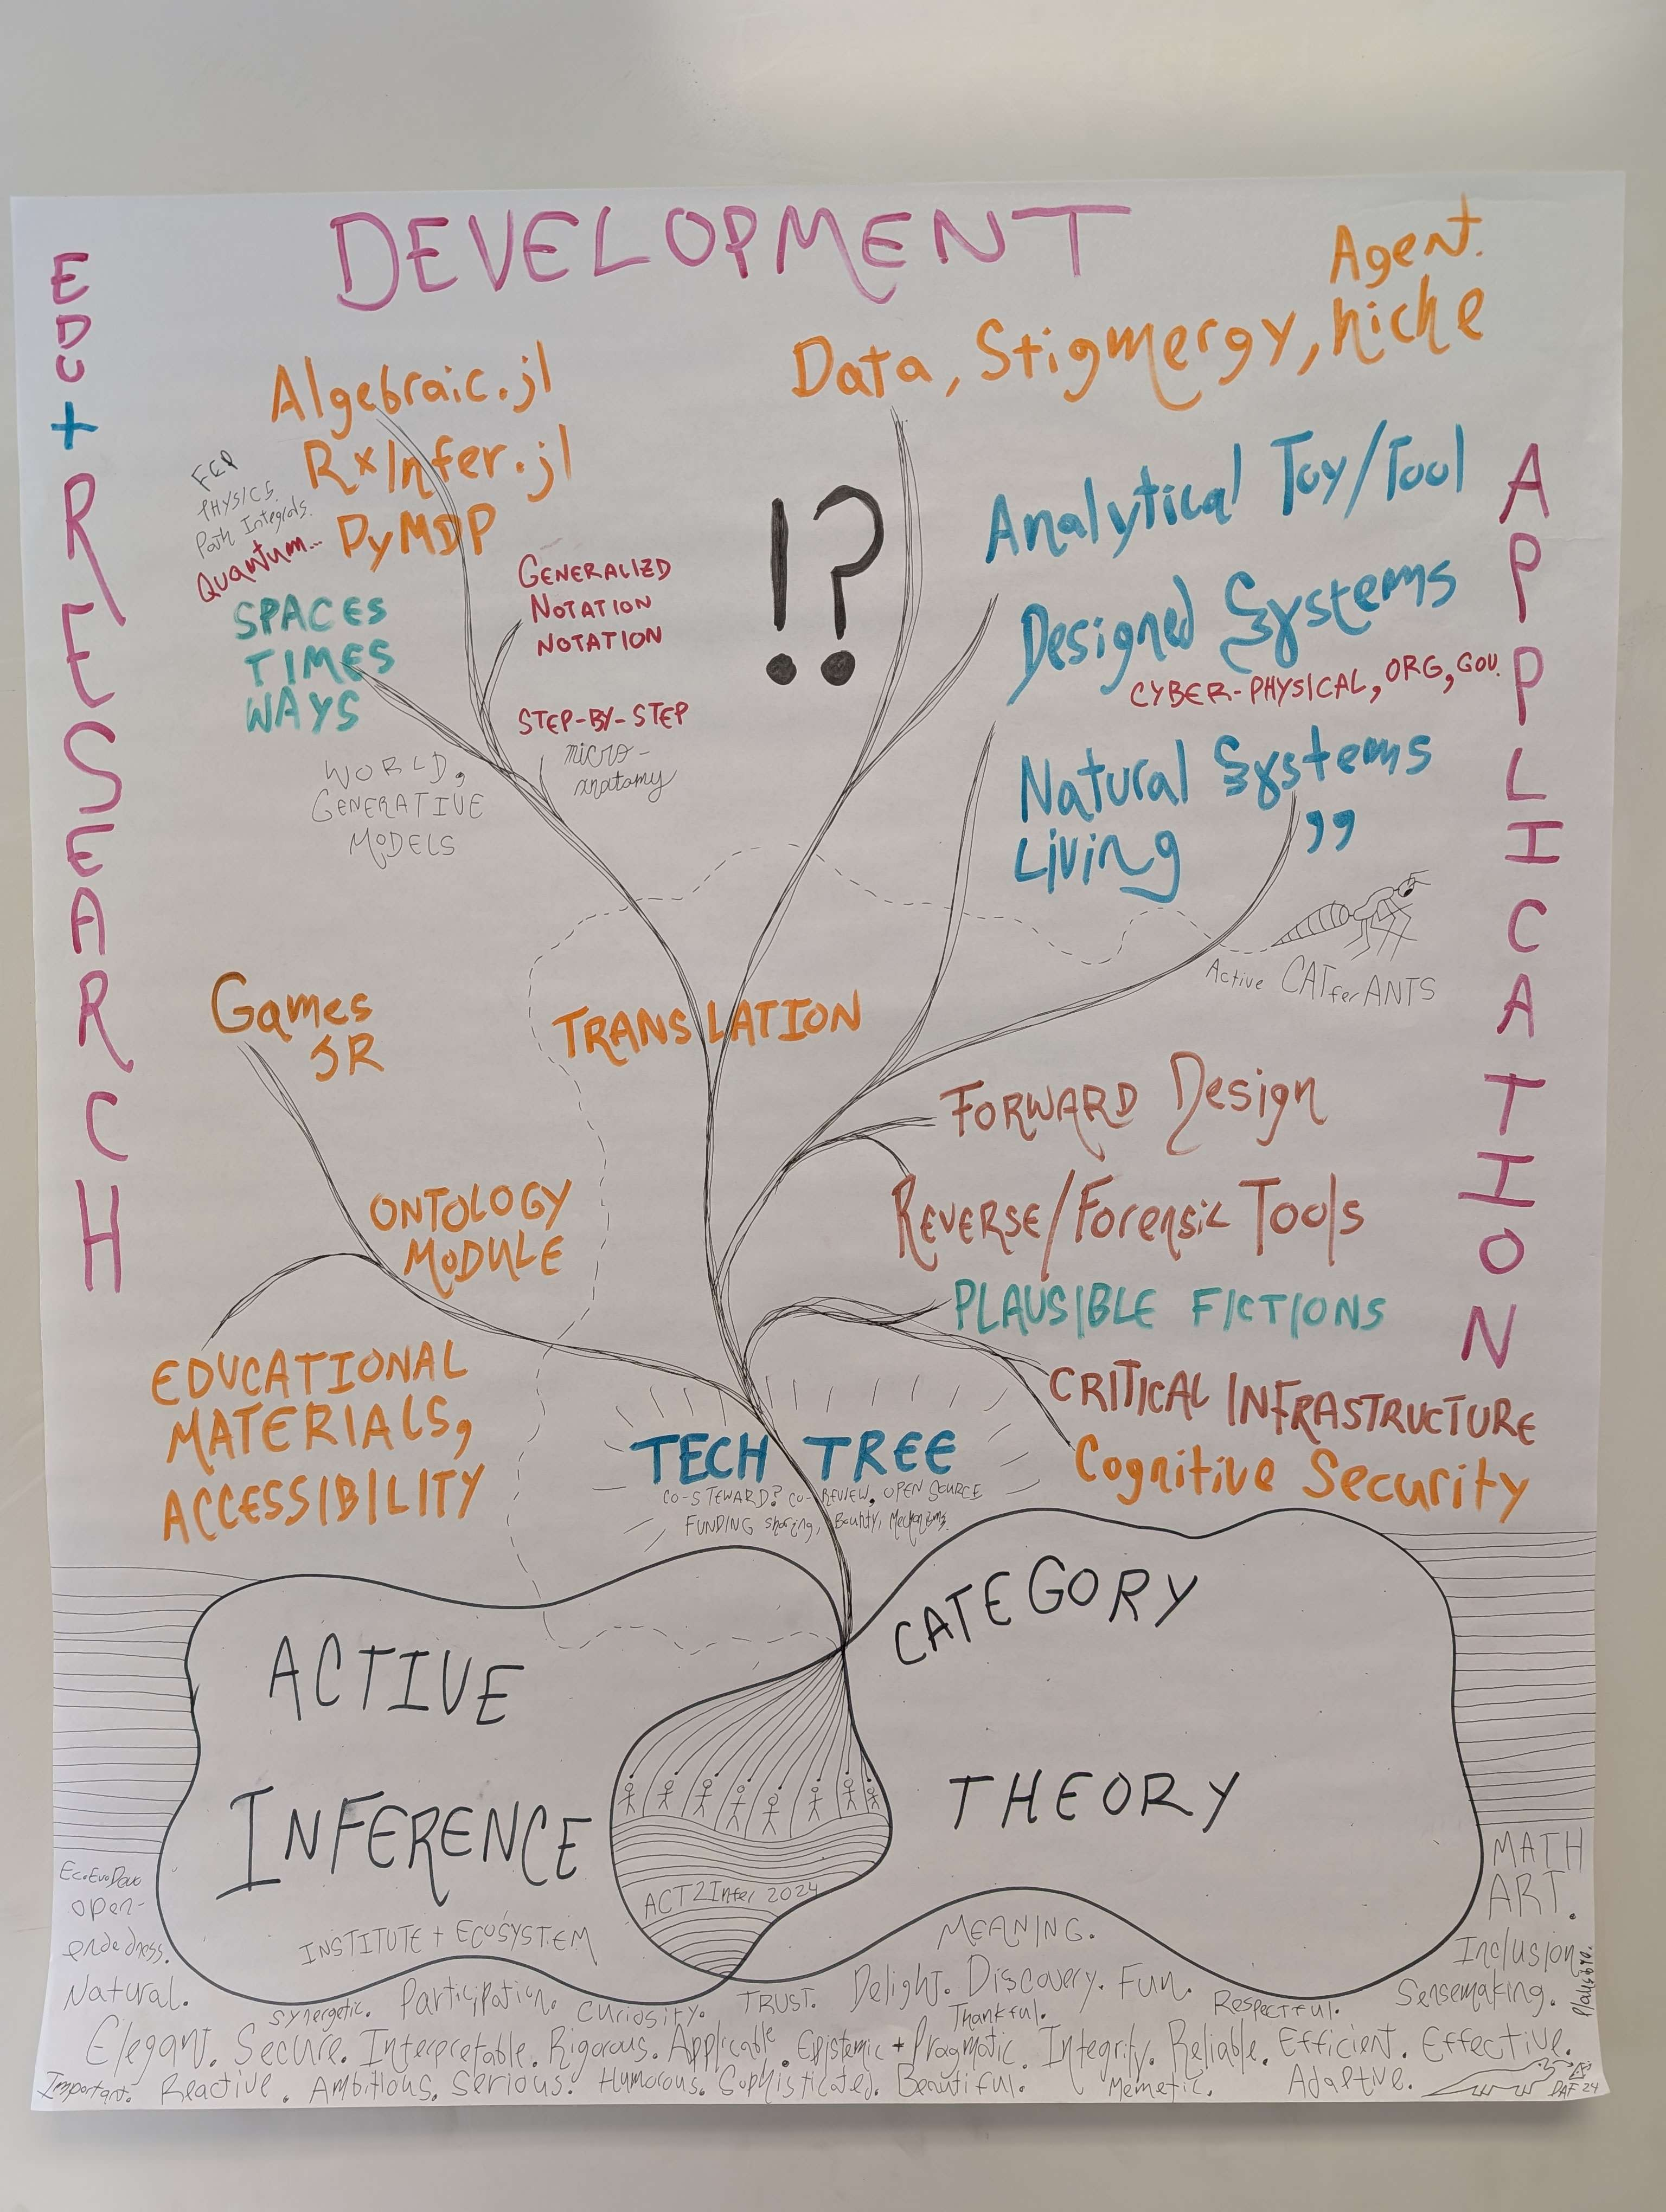 DEVELOPMENT
EDU
+
RESEARCH
APPLICATION
Agent.
Data, Stigmergy, niche
Algebraic.jl
RxInfer.jl
PyMDP
FEP
PHYSICS.
Path Integrals.
Quantum...
SPACES
TIMES
WAYS
WORLD,
GENERATIVE
MODELS
GENERALIZD
NOTATION
NOTATION
STEP-BY-STEP
micro-
anatomy
!?
Analytical Toy/Tool
Designed Systems
CYBER-PHYSICAL, ORG, GOV.
Natural Systems
Living ”
Active CATferANTS
TRANSLATION
Games
JR
ONTOLOGY
MODULE
EDUCATIONAL
MATERIALS,
ACCESSIBILITY
FORWARD Design
REVERSE/Forensic Tools
PLAUSIBLE FICTIONS
CRITICAL INFRASTRUCTURE
Cognitive Security
TECH TREE
CO-STEWARD? CO-REVIEW, OPEN SOURCE
FUNDING sharing, Bounty, Mechanisms.
ACTIVE
INFERENCE
CATEGORY
THEORY
ACT2Infer 2024
INSTITUTE + ECOSYSTEM
EcoEvoDevo
open-
endedness.
Natural.
MATH
ART.
Inclusion.
Sensemaking.
Plausible.
MEANING.
synergetic. Participation. Curiosity. TRUST. Delight. Discovery. Fun.
Thankful. Respectful.
Elegant. Secure. Interpretable. Rigorous. Applicable. Epistemic + Pragmatic. Integrity. Reliable. Efficient. Effective.
Important. Reactive. Ambitious. Serious. Humorous. Sophisticated. Beautiful. Memetic. Adaptive.
DAF 24